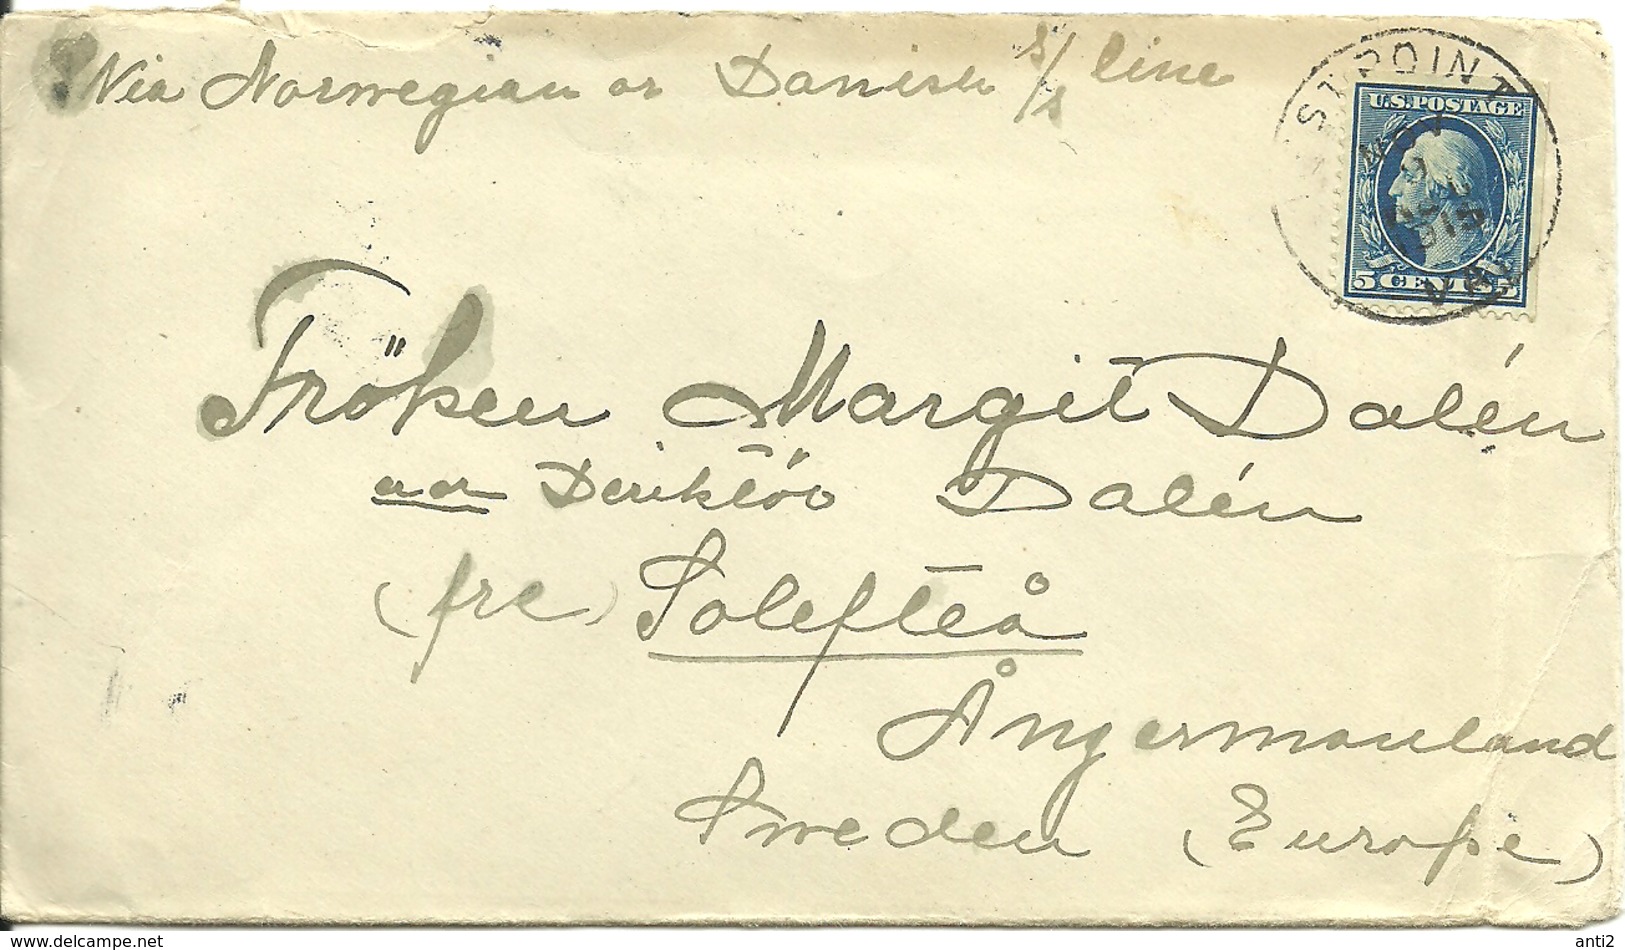 Via Norwegian or Danish s/s line
ST POINT
NOV
VA.
U.S. POSTAGE
5 CENTS 5
Fröken Margit Dalén
Dalén
(fre) Solefteå
Ångermanland
Sweden (Europe)
www.delcampe.net
anti2